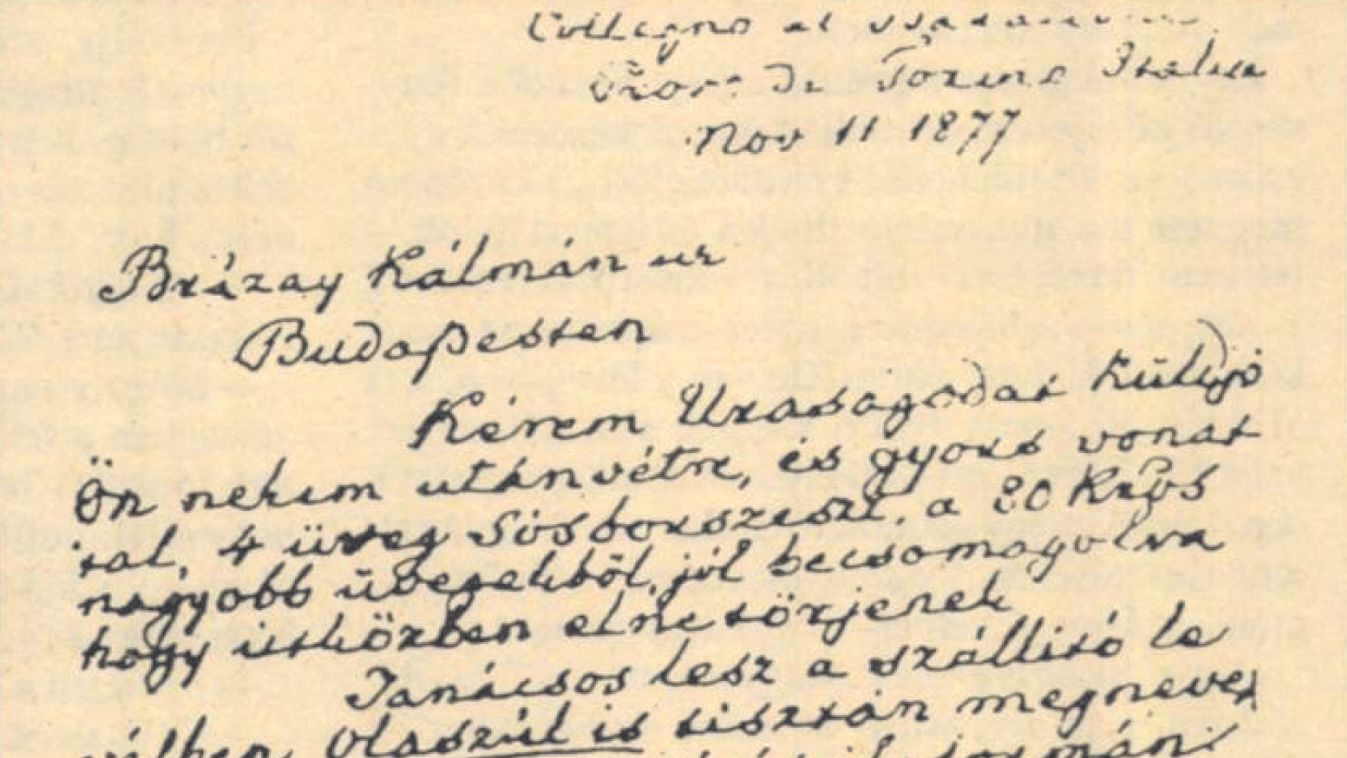 Collegno al
Prov. di Torino Italia
Nov 11 1877
Brázay Kálmán ur
Budapesten
Kérem Uraságodat küldjö
Ön nekem utánvétre, és gyors vonat
tal, 4 üveg Sósborszeszt, a 80 Krós
nagyobb üvegekböl, jól becsomagolva
hogy utközben el ne törjenek
Tanácsos lesz a szállitó le
vélben olaszúl is tisztán megnevez